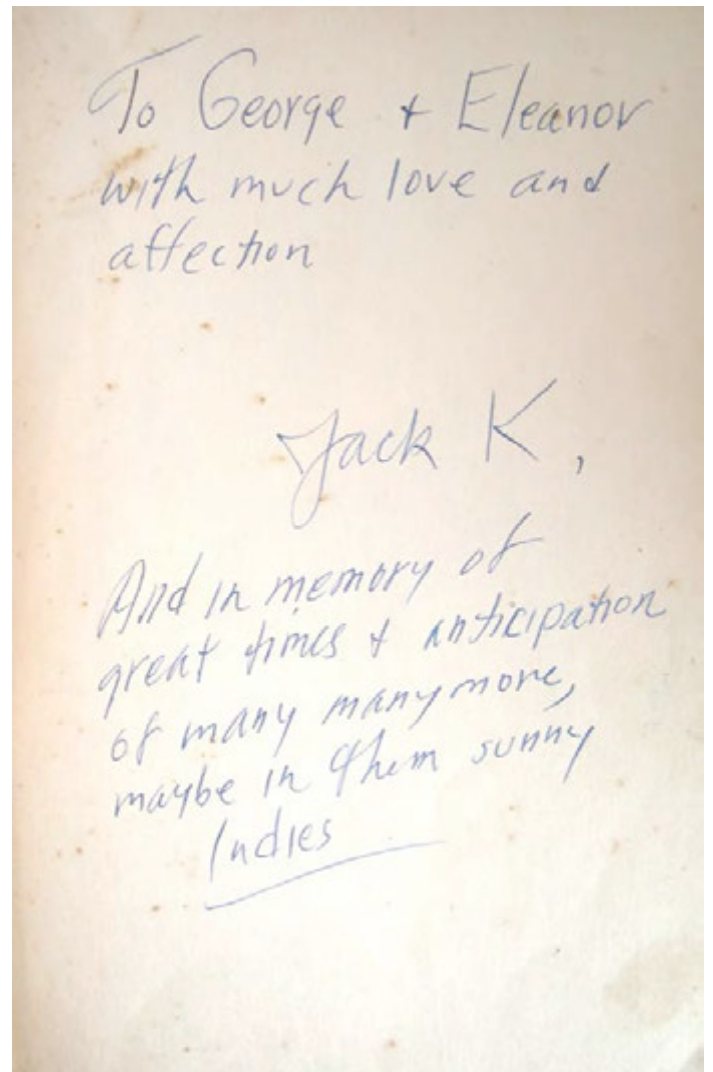 To George + Eleanor
with much love and
affection
Jack K,
And in memory of
great times + anticipation
of many many more,
maybe in them sunny
Indies